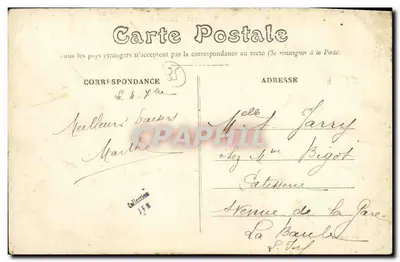 Carte Postale
Tous les pays étrangers n'acceptent pas la correspondance au recto (Se renseigner à la Poste)
CORRESPONDANCE
ADRESSE
35
Le 4. 7bre
Meilleurs baisers
Marthe
Melle Jarry
chez Mme Bigot
Avenue de la Gare
La Baule
L. Inf
Collection
J F M
CPAPHIL